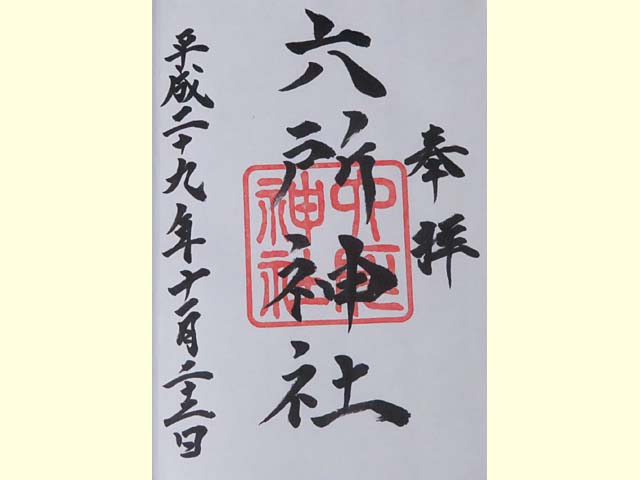 奉拝
六所神社
平成二十九年十一月二十三日